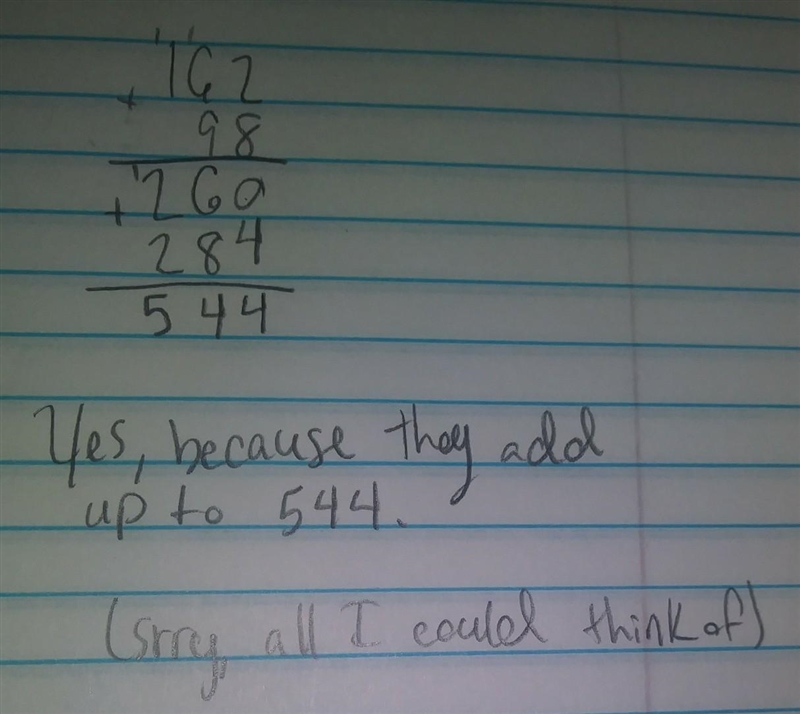 1 1
+ 162
98
1
+ 260
284
544
Yes, because they add
up to 544.
(srry, all I could think of)